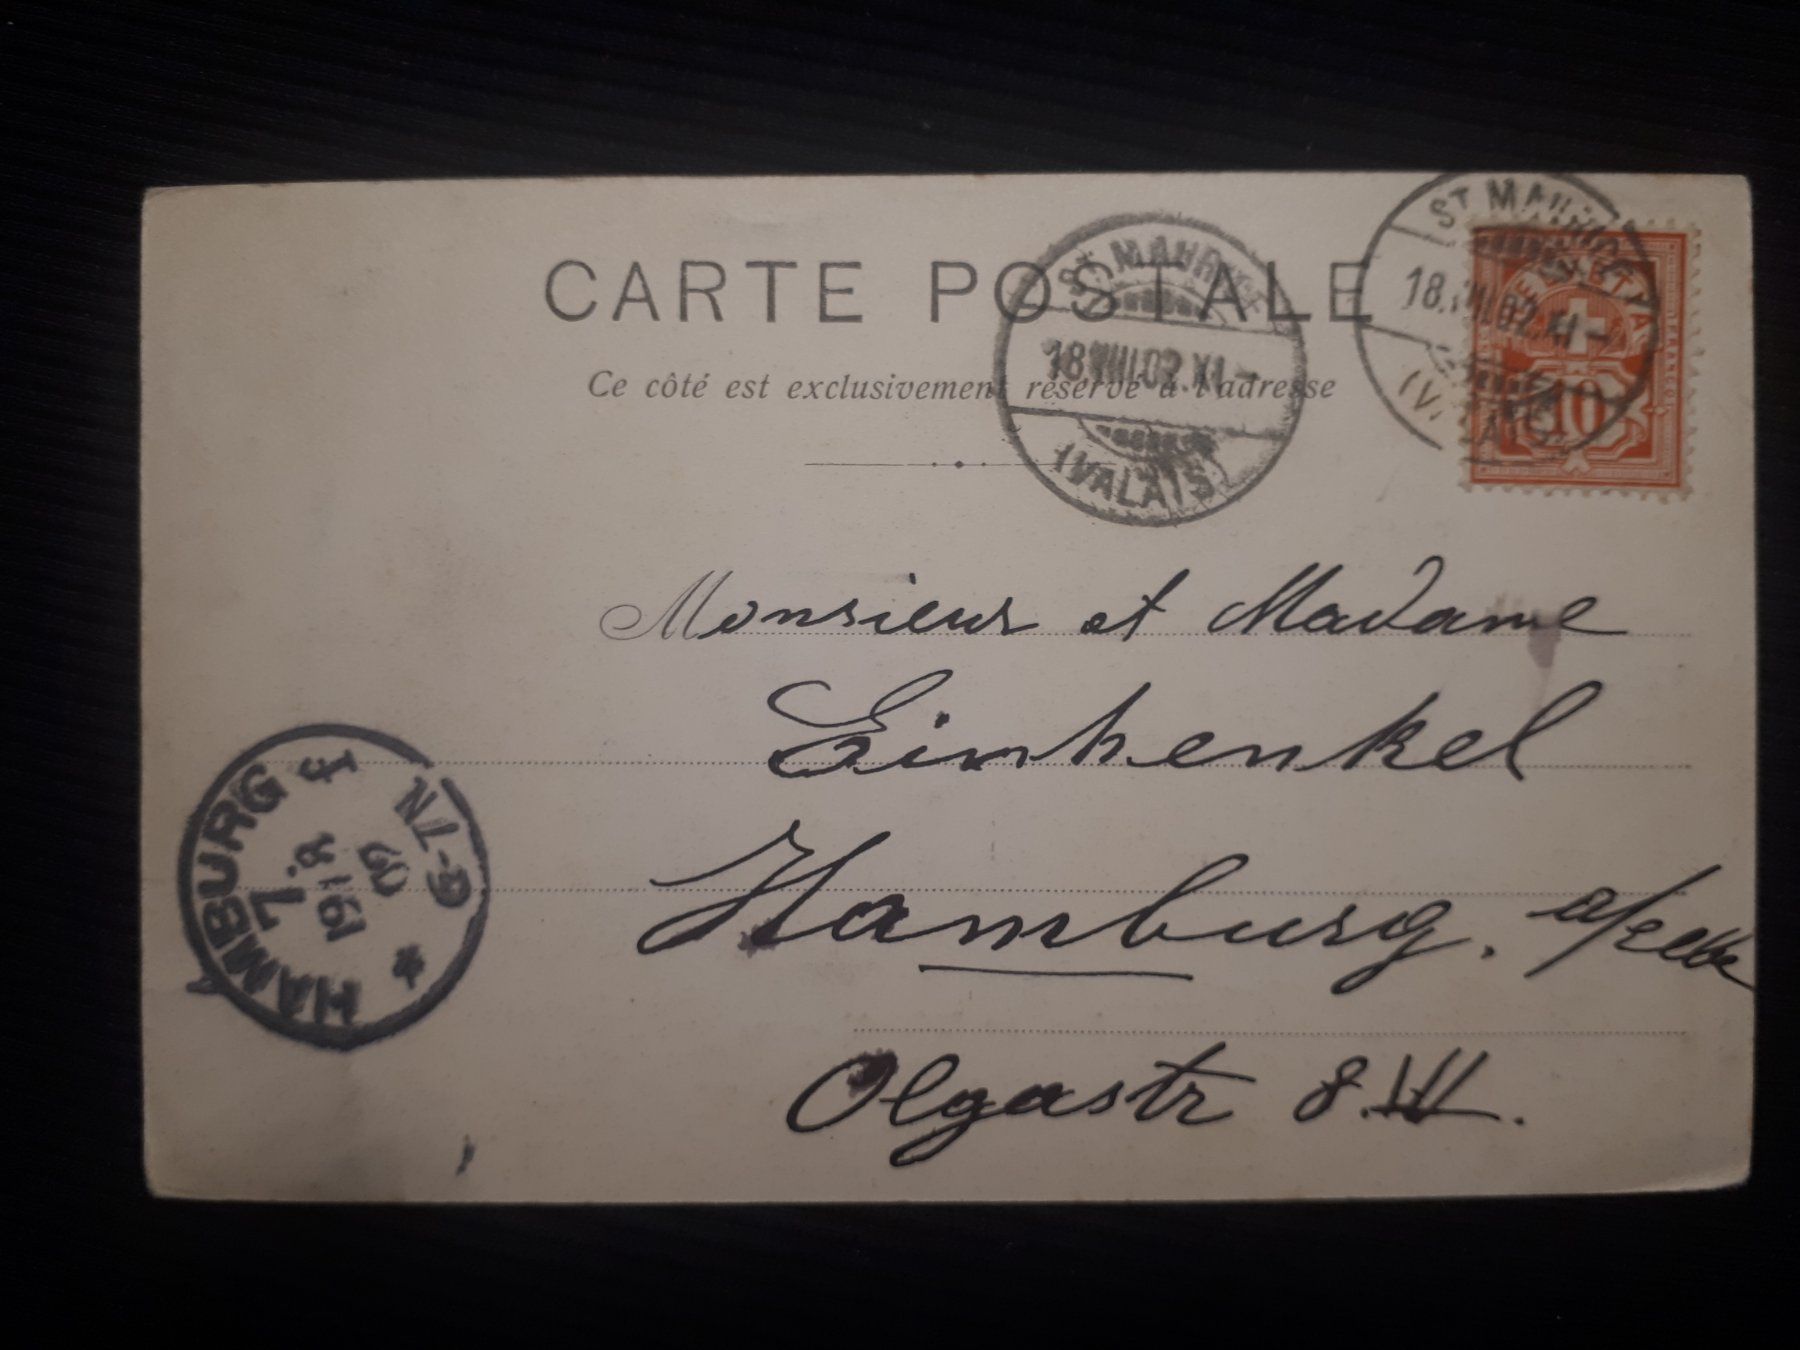 CARTE POSTALE
Ce côté est exclusivement réservé à l'adresse
ST. MAURICE
18.VIII.02.XI-
(VALAIS)
ST. MAURICE
18.VIII.02.XI-
(VALAIS)
HELVETIA
10
Monsieur et Madame
Einhenkel
Hamburg. a/Elbe
Olgastr 8.
HAMBURG
1.
19/8
02
6-7N